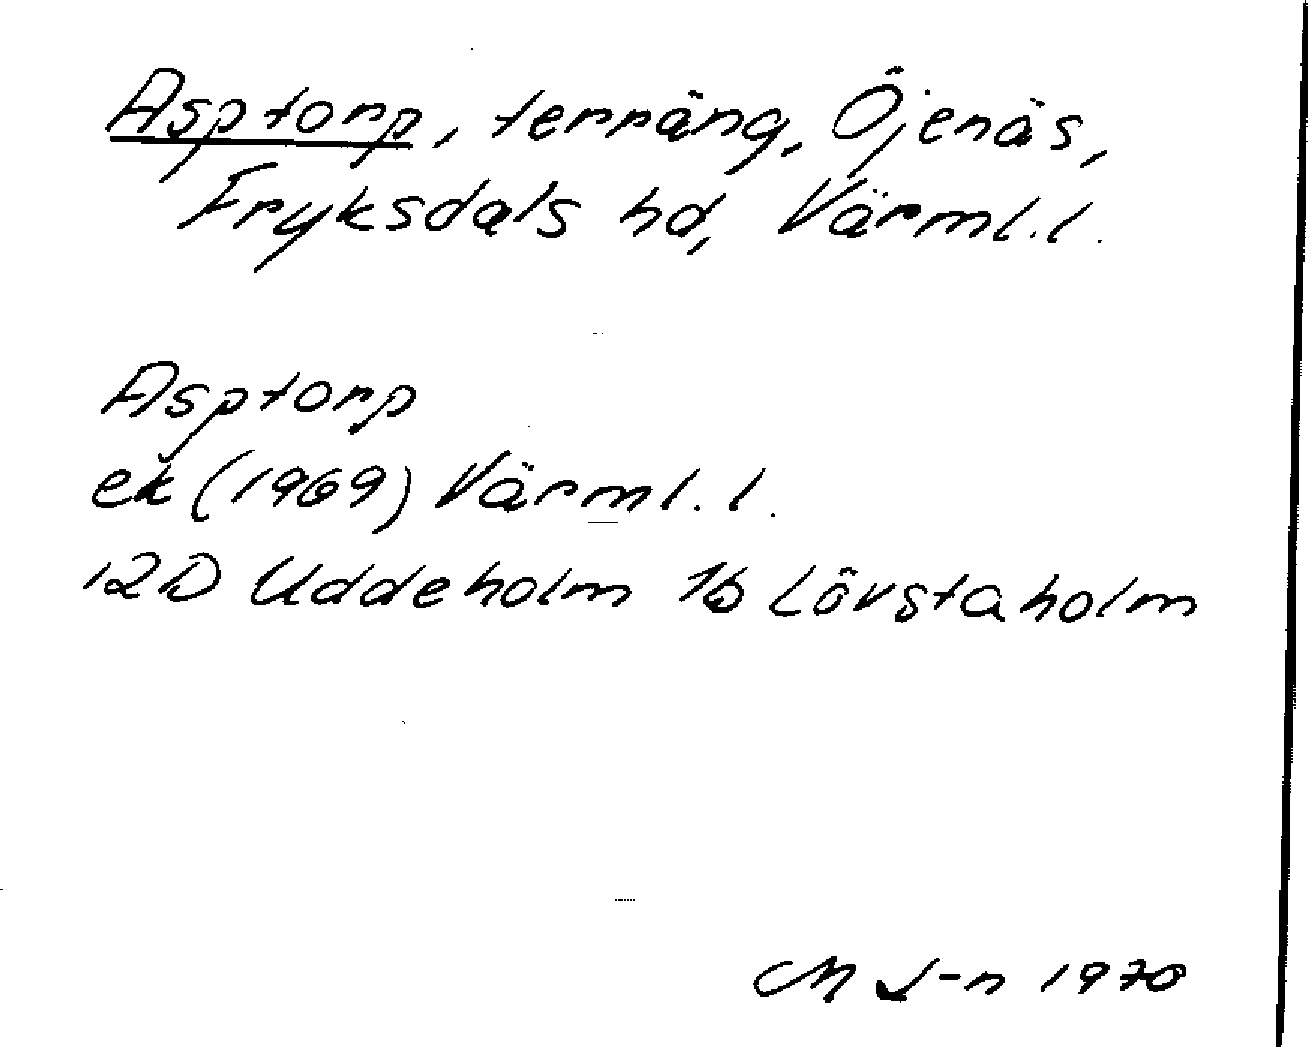 Asptorp, terräng, Öjenäs,
Fryksdals hd, Värml.l.
Asptorp
ek (1969) Värml.l.
12D Uddeholm 1b Lövstaholm
M J-n 1970